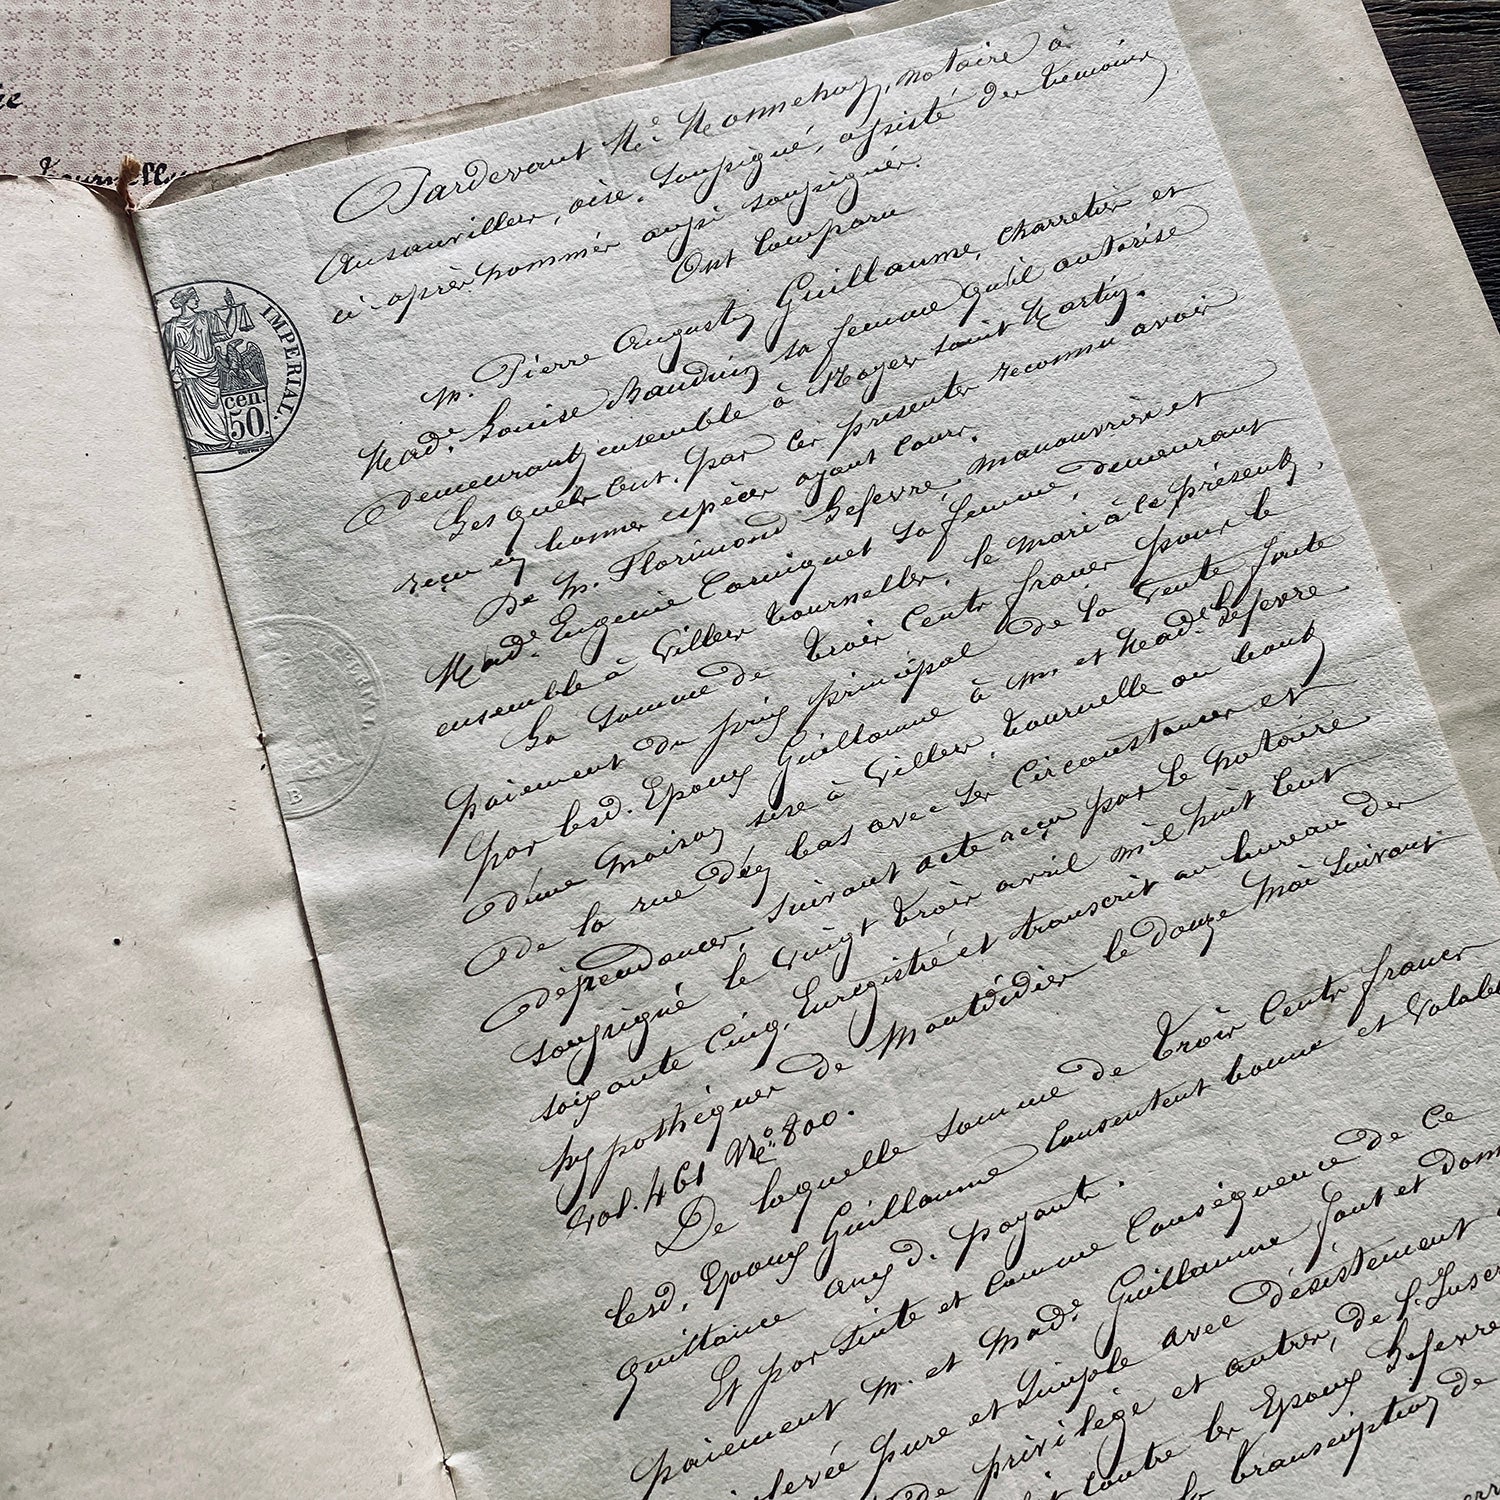 Pardevant Me. Monnehay, notaire à
Ansauviller, oise, soussigné, assisté des témoins
ci-après nommés aussi soussignés.
Ont comparu
M. Pierre Augustin Guillaume, charretier et
Made. Louise Bauduin sa femme qu'il autorise
demeurant ensemble à Noyer saint Martin.
Lesquels ont, par ces présentes reconnu avoir
reçu en bonnes espèces ayant cours.
De M. Florimond Lefevre, manouvrier et
Made. Eugénie Corniquet sa femme, demeurant
ensemble à Villers tournelles, le mari à ce présent,
La somme de trois cents francs pour le
paiement du prix principal de la vente faite
par lesd. Epoux Guillaume à M. et Made. Lefevre
d'une maison sise à Villers, tournelle au bout
de la rue d'en bas avec ses circonstances et
dépendances, suivant acte reçu par le notaire
soussigné le vingt trois avril mil huit cent
soixante cinq, Enregistré et transcrit au bureau des
hypothèques de Montdidier le douze Mai suivant
vol. 461 No. 800.
De laquelle somme de trois cents francs
lesd. Epoux Guillaume consentent bonne et valable
quittance aux d. payants.
Et par suite et comme conséquence de ce
paiement M. et Made. Guillaume font et donn
levée pure et simple avec désistement
de privilège et autres, de l'Inscr
contre les Epoux Lefevre
la transcription de
IMPERIAL.
cen.
50.
B